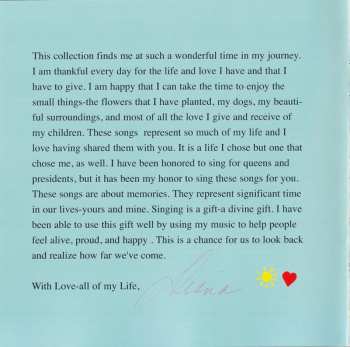 This collection finds me at such a wonderful time in my journey.
I am thankful every day for the life and love I have and that I
have to give. I am happy that I can take the time to enjoy the
small things-the flowers that I have planted, my dogs, my beauti-
ful surroundings, and most of all the love I give and receive of
my children. These songs  represent so much of my life and I
love having shared them with you. It is a life I chose but one that
chose me, as well. I have been honored to sing for queens and
presidents, but it has been my honor to sing these songs for you.
These songs are about memories. They represent significant time
in our lives-yours and mine. Singing is a gift-a divine gift. I have
been able to use this gift well by using my music to help people
feel alive, proud, and happy . This is a chance for us to look back
and realize how far we've come.
With Love-all of my Life,